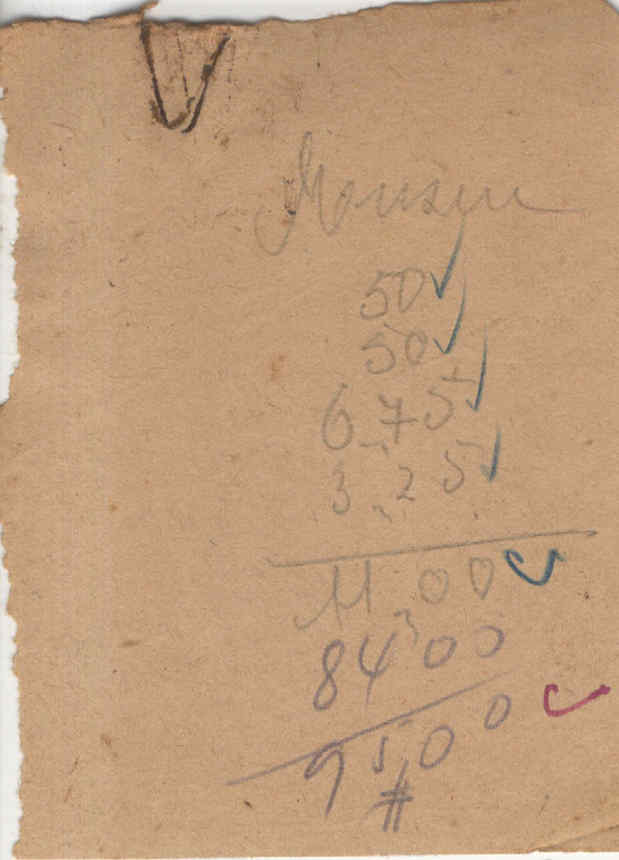 50
50
6,75
3,25
11,00
84 00
95,00
#